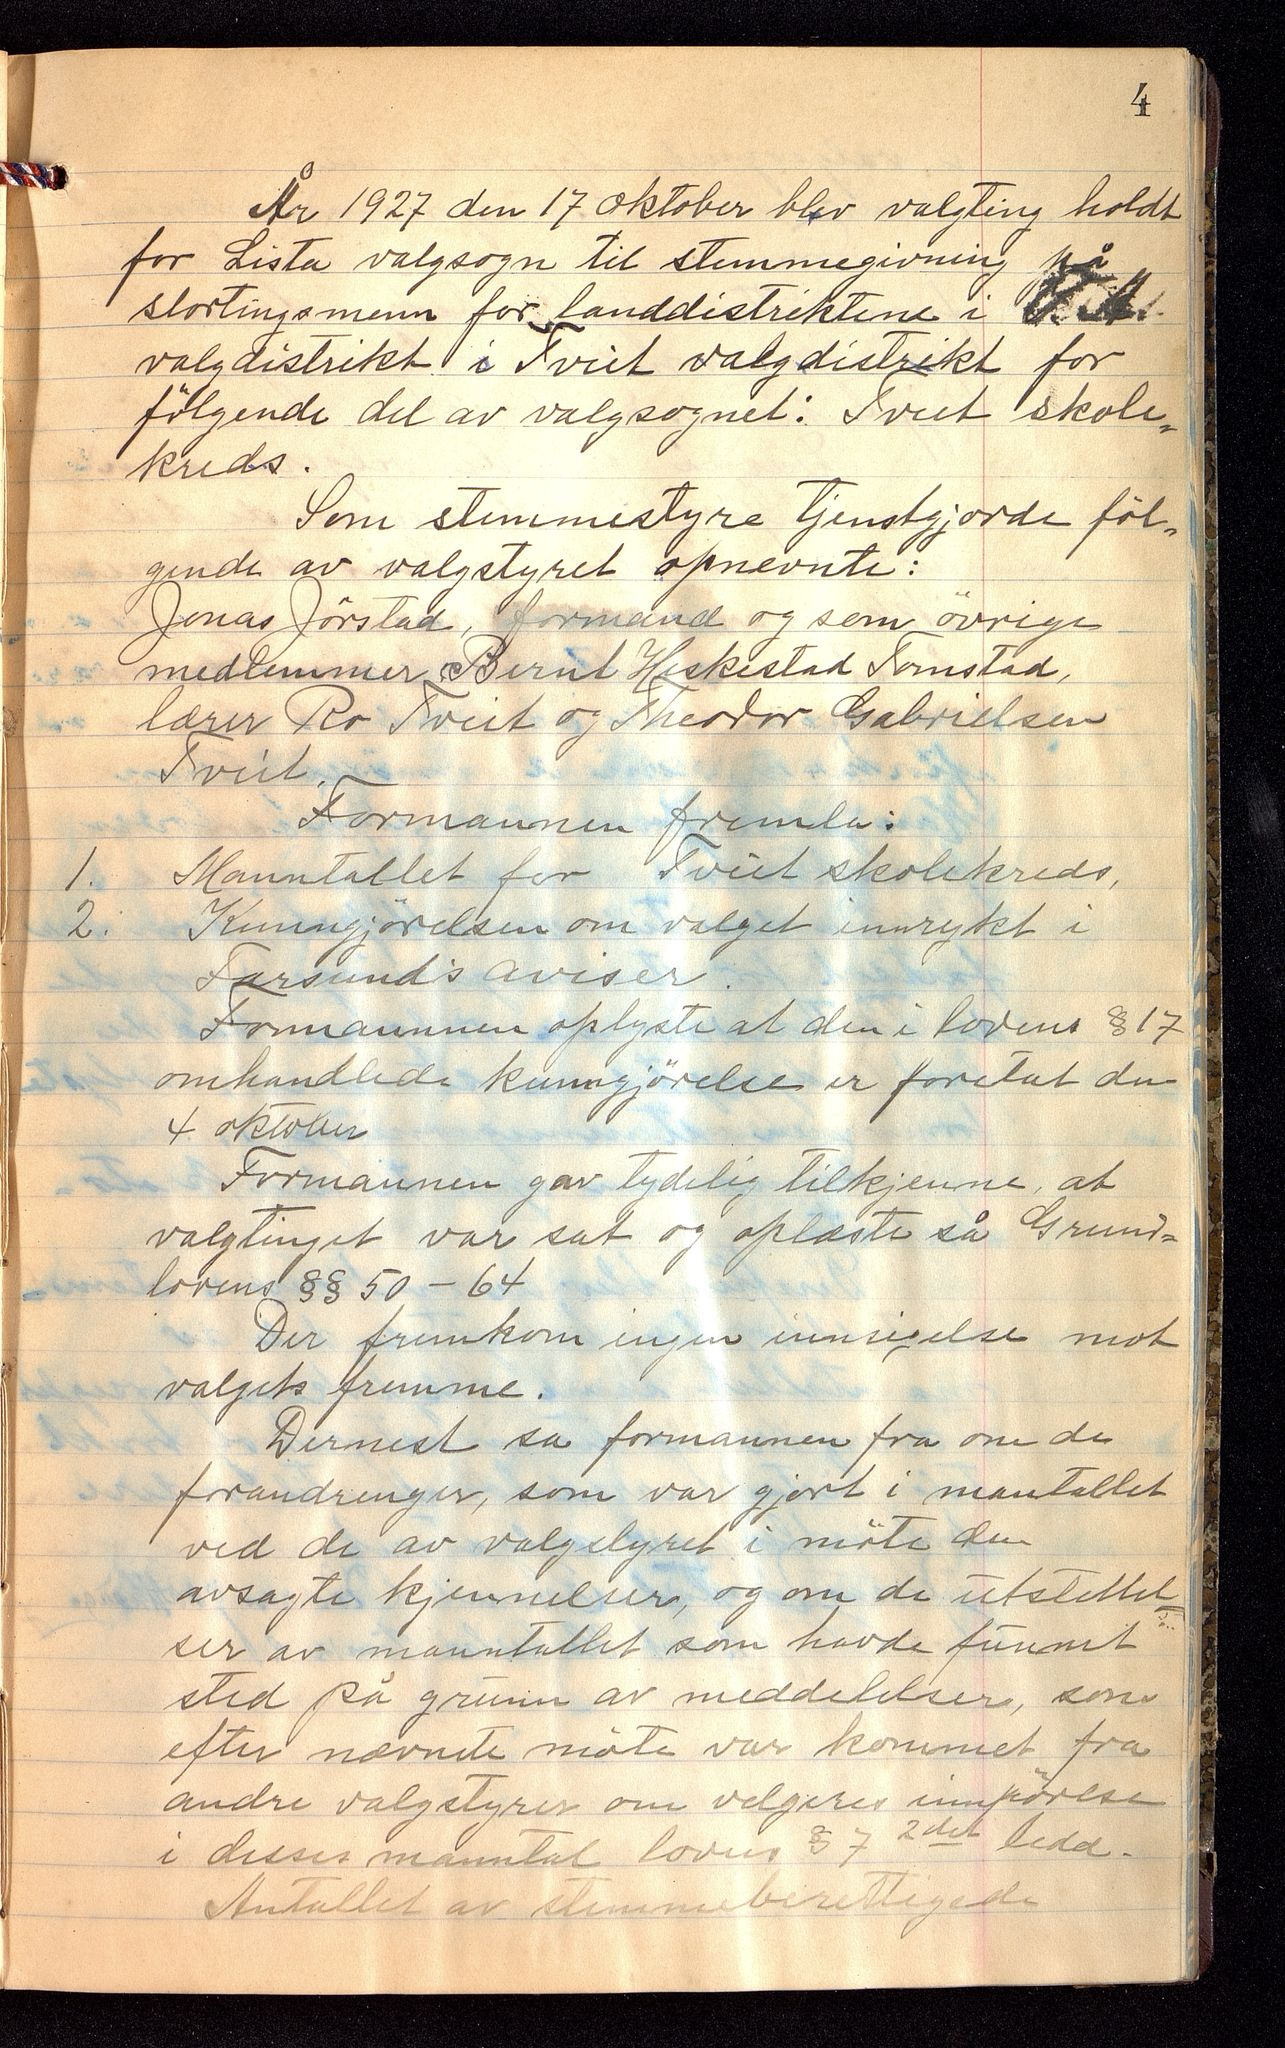 4
År 1927 den 17 oktober blev valgting holdt
for Lista valgsogn til stemmegivning på
stortingsmenn for landdistriktene i
valgdistrikt i Tveit valgdistrikt for
følgende del av valgsognet: Tveit skole-
kreds.
Som stemmestyre tjenstgjorde føl-
gende av valgstyret opnevnte:
Jonas Jörstad, formand og som övrige
medlemmer Bernt Heskestad Tomstad,
lærer Ro Tveit og Theodor Gabrielsen
Tveit.
Formannen fremla:
1. Manntallet for Tveit skolekreds,
2. Kunngjörelsen om valget innrykt i
Farsunds aviser.
Formannen oplyste at den i lovens § 17
omhandlede kunngjörelse er foretat den
4 oktober
Formannen gav tydelig tilkjenne, at
valgtinget var sat og oplæste så Grund-
lovens §§ 50 - 64
Der fremkom ingen innsigelse mot
valgets fremme.
Dernest sa formannen fra om de
forandrenger, som var gjort i mantallet
ved de av valgstyret i möte den
avsagte kjennelser, og om de utslettel-
ser av manntallet som havde funnet
sted på grunn av meddelelser, som
efter nævnte möte var kommet fra
andre valgstyrer om velgeres innförelse
i disses manntal lovens § 7 2det ledd.
Antallet av stemmeberettigede